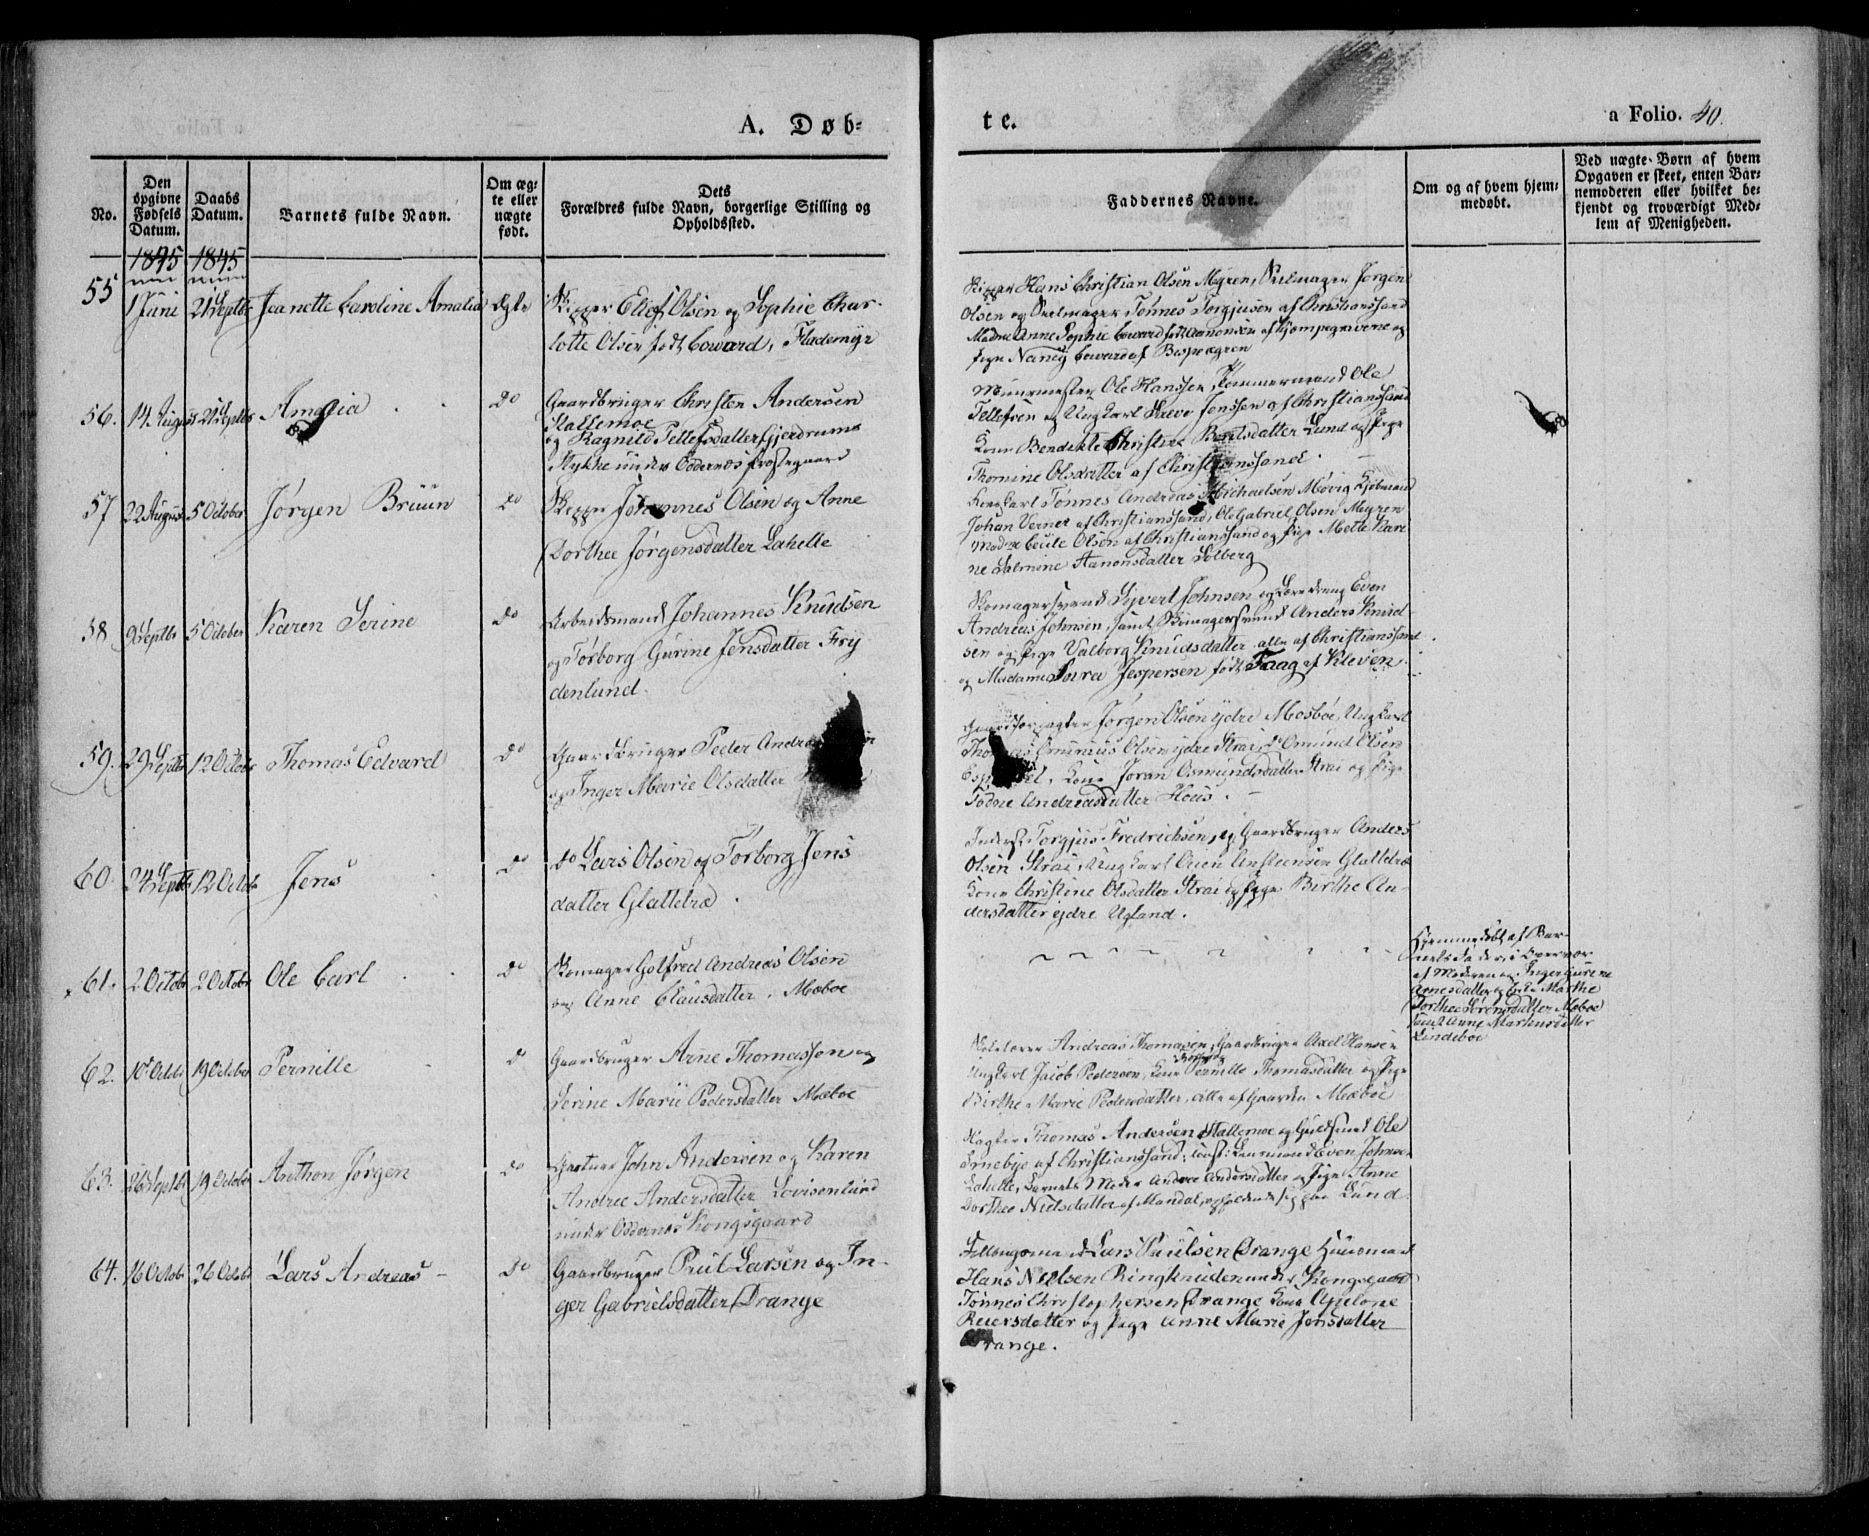 A. Døb-
te.
a Folio. 40.
No.
Den opgivne Fødsels Datum.
Daabs Datum.
Barnets fulde Navn.
Om ægte eller uægte født.
Dets Forældres fulde Navn, borgerlige Stilling og Opholdssted.
Faddernes Navne.
Om og af hvem hjemmedøbt.
Ved uægte Børn af hvem Opgaven er skeet, enten Barnemoderen eller hvilket bekjendt og troværdigt Medlem af Menigheden.
1845 1845
55 1 Juni 21 Septbr Jeanette Caroline Amalia Ægte
Skipper Ellef Olsen og Sophie Char-
lotte Olsen født Coward, Flademyr
Skipper Hans Christian Olsen Myren, Seilmager Jørgen
Olsen og Seilmager Tønnes Torgjusen af Christianssand
Madme Anne Sophie Coward født Aanonsen af Kjempegravene og
Pige Nancy Coward af Bispegren
56. 14 August 21 Septbr Amalia Do
Gaardbruger Christen Andersen
Stallemoe
og Ragnild Tellefsdatter Gjerdrums
Stykke under Oddernes Præstegaard
Muurmester Ole Hanssen, Tømmermand Ole
Tellefsen og Ungkarl Salve Jenssen af Christianssand
Kone Bendikte Christine Berntsdatter Lund og Pige
Thomine Olsdatter af Christianssand.
57 22 August 5 October Jørgen Brüün Do
Skipper Johannes Olsen og Anne
Dorthea Jørgensdatter Lahelle
Ungkarl Tønnes Andreas Michaelsen Møvig, Kjøbmand
Johan Verner af Christianssand, Ole Gabriel Olsen Myren
Madme Cecilie Olsen af Christianssand og Pige Mette Kari-
ne Salmine Aanonsdatter Solberg
58 9 Septbr 5 October Karen Serine Do
Arbeidsmand Johannes Knudsen
og Torborg Gurine Jensdatter Fry
denlund.
Skomagersvend Syvert Johnsen og Læredreng Even
Andreas Johnsen, samt Skomagersvend Anders Knud-
sen og Pige Valborg Knudsdatter alle af Christianssand
og Madame Sara Jespersen født Faag af Kleven.
59. 29 Septbr 12 Octobr Thomas Edvard Do
Gaardbruger Peder Andreas
og Inger Marie Olsdatter
Gaardforpagter Jørgen Olsen ydre Mosbøe, Ungkarl
Thomas Omunnus Olsen ydre Strai, Do Omund Olsen
Kone Jøran Osmundsdatter Strai og Pige
Tødne Andreasdatter Hous.
60. 24 Septbr 12 Octobr Jens Do
do Lars Olsen og Torborg Jens
datter Glattetræ.
Inderst Torgjus Fredrichsen, og Gaardbruger Anders
Olsen Strai, Ungkarl Ansteensen Glattetræ
Kone Christine Olsdatter Strai og Pige Birthe An-
dersdatter ydre Ugland.
61. 2 Octobr 2 Octobr Ole Carl Do
Skomager Golfred Andreas Olsen
og Anne Clausdatter. Mæboe
Hjemmedøbt af Bar-
nets Fader i Overvær
af Moderen og Inger Gurine
Arnesdatter og Enke Marthe
Dorthea Sørensdatter Mæboe
samt Anne Markusdatter
Lindeboe
62. 10 Octobr 19 October Pernille Do
Gaardbruger Arne Thomassen og
Serine Marie Pedersdatter Mæboe
Skolelærer Andreas Thomasen, Gaardbruger Axel Hansen
Ungkarl Jacob Pedersen, Kone Pernille Thomasdatter og Pige
Birthe Marie Pedersdatter, alle af Gaarden Mæboe
63. 26 Septbr 19 October Anthon Jørgen Do
Gartner John Andersen og Karen
Andrea Andersdatter Lovisenlund
under Oddernes Kongsgaard
Thomas Andersen Stallemoe og Guldsmed Ole
Ernebye af Christianssand; Even Johnsen
Lahelle, Barnets Moder Andrea Andersdatter og Pige Anne
Dorthea Nielsdatter af Mandal, opholdende sig paa Lund.
64. 16 Octobr 26 Octobr Lars Andreas Do
Gaardbruger Poul Larsen og In-
ger Gabrielsdatter Drange
Lars Paulsen Drange Huusmand
Hans Nielsen Ringknuden under Kongsgaard
Tønnes Christophersen Drange Kone Apelone
Reiersdatter og Pige Anne Marie Jensdatter
Drange.